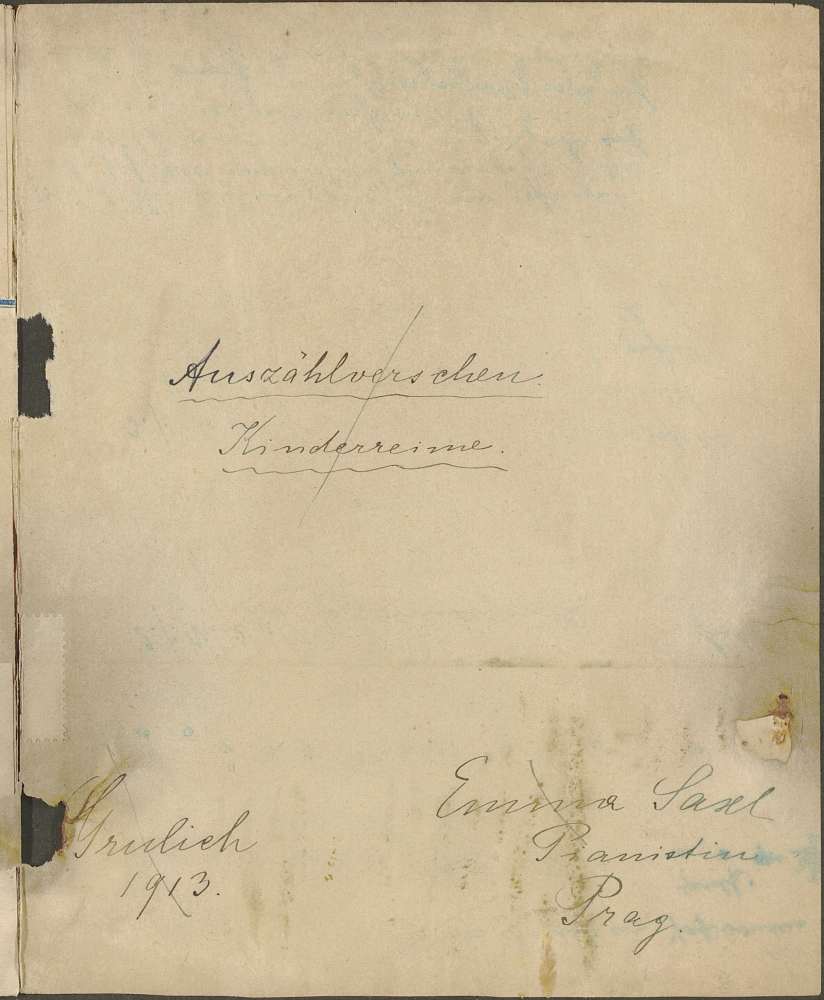 Auszählverschen.
Kinderreime.
Grulich
1913.
Emma Saxl
Pianistin
Prag.